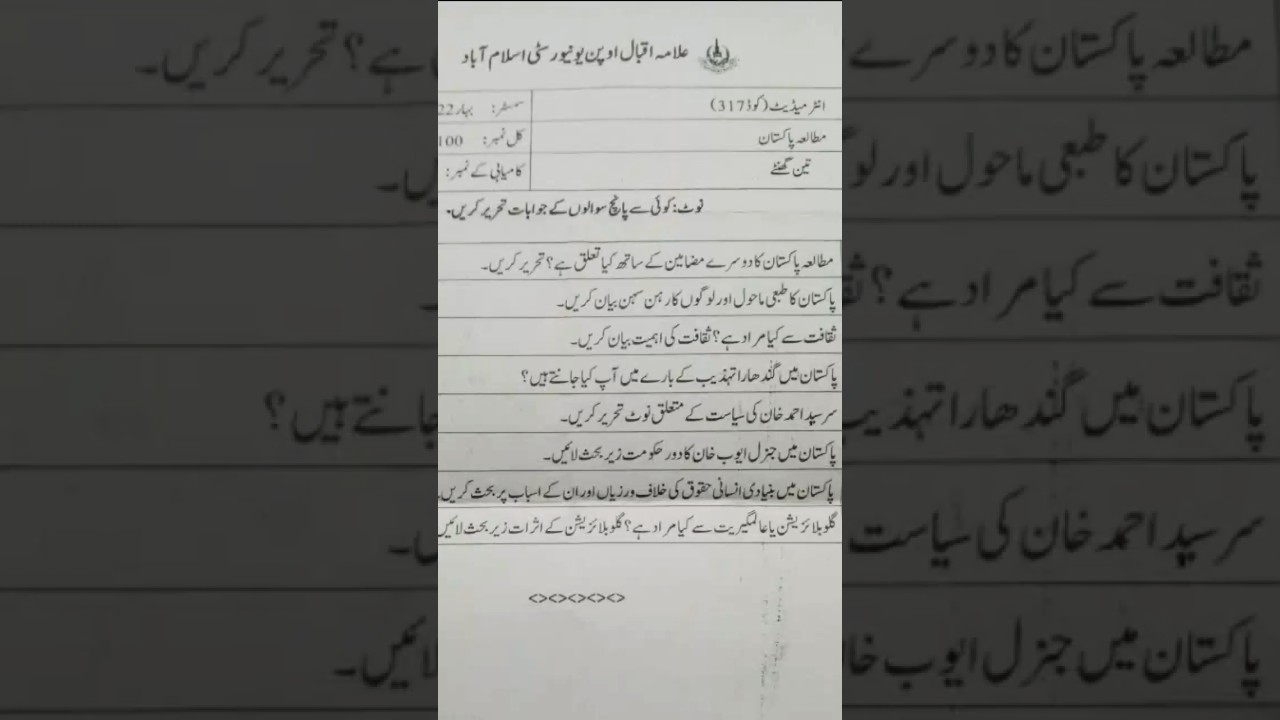 علامہ اقبال اوپن یونیورسٹی اسلام آباد
انٹر میڈیٹ (کوڈ 317) سمسٹر: بہار 22
مطالعہ پاکستان کل نمبر: 100
تین گھنٹے کامیابی کے نمبر:
نوٹ: کوئی سے پانچ سوالوں کے جوابات تحریر کریں۔
مطالعہ پاکستان کا دوسرے مضامین کے ساتھ کیا تعلق ہے؟ تحریر کریں۔
پاکستان کا طبعی ماحول اور لوگوں کا رہن سہن بیان کریں۔
ثقافت سے کیا مراد ہے؟ ثقافت کی اہمیت بیان کریں۔
پاکستان میں گندھارا تہذیب کے بارے میں آپ کیا جانتے ہیں؟
سر سید احمد خان کی سیاست کے متعلق نوٹ تحریر کریں۔
پاکستان میں جنرل ایوب خان کا دور حکومت زیر بحث لائیں۔
پاکستان میں بنیادی انسانی حقوق کی خلاف ورزیاں اور ان کے اسباب پر بحث کریں۔
گلوبلائزیشن یا عالمگیریت سے کیا مراد ہے؟ گلوبلائزیشن کے اثرات زیر بحث لائیں
<><><><><>